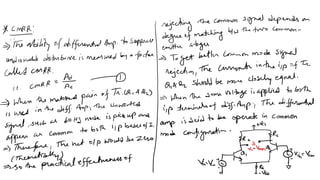 * CMRR:
⇒ The ability of differential Amp. to suppress
undesired disturbance is measured by a factor
called CMRR.
i.e. CMRR = Ad / Ac — ①
⇒ When the matched pair of Tr. (Q1 & Q2)
is used in the diff Amp; the unwanted
signal such as 60 Hz noise is pick up and
appear as common to both i/p bases of
⇒ Therefore, The net o/p would be Zero
(Theoretically)
⇒ So the practical effectiveness of
rejecting the common signal depends on
degree of matching b/w the two common-
emitter stages
⇒ To get better common mode signal
rejection, The currents in the i/p of Tr.
Q1 & Q2 should be more closely equal.
⇒ when the same voltage is applied to both
i/p terminals of diff. Amp; The differential
amp is said to be operate in common
mode configuration.